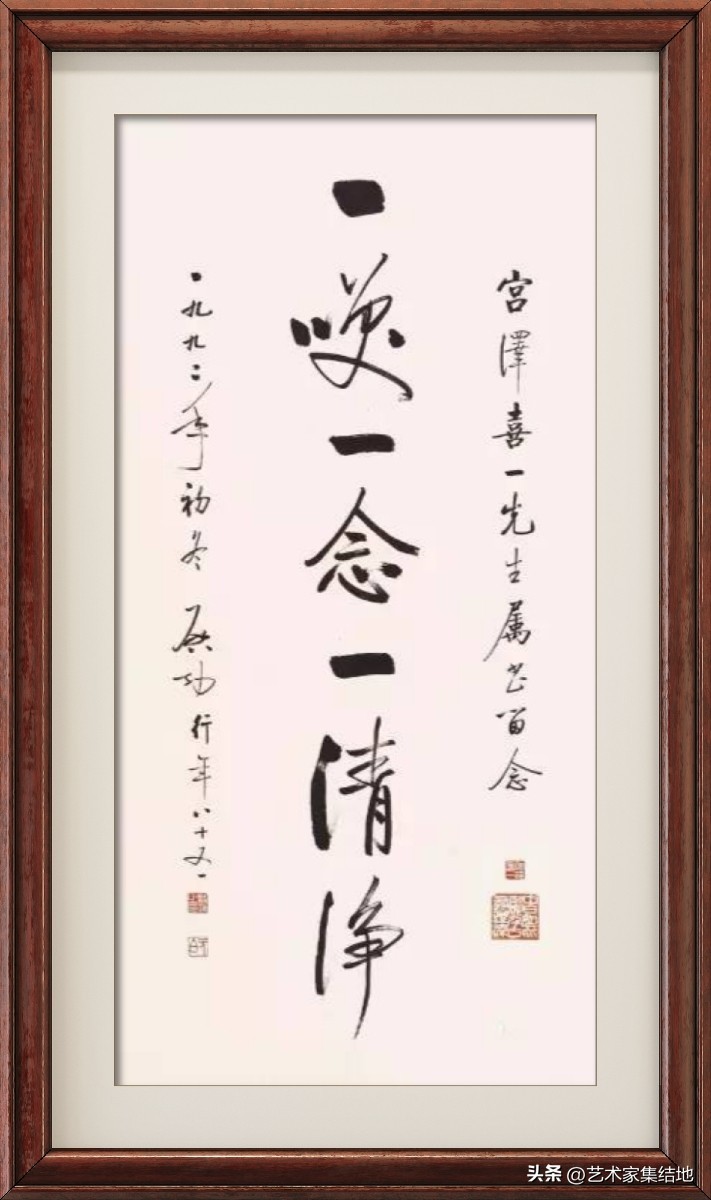 宮澤喜一先生属书留念
一咲一念一清淨
一九九二年初冬 启功行年八十又一
头条 @艺术家集结地